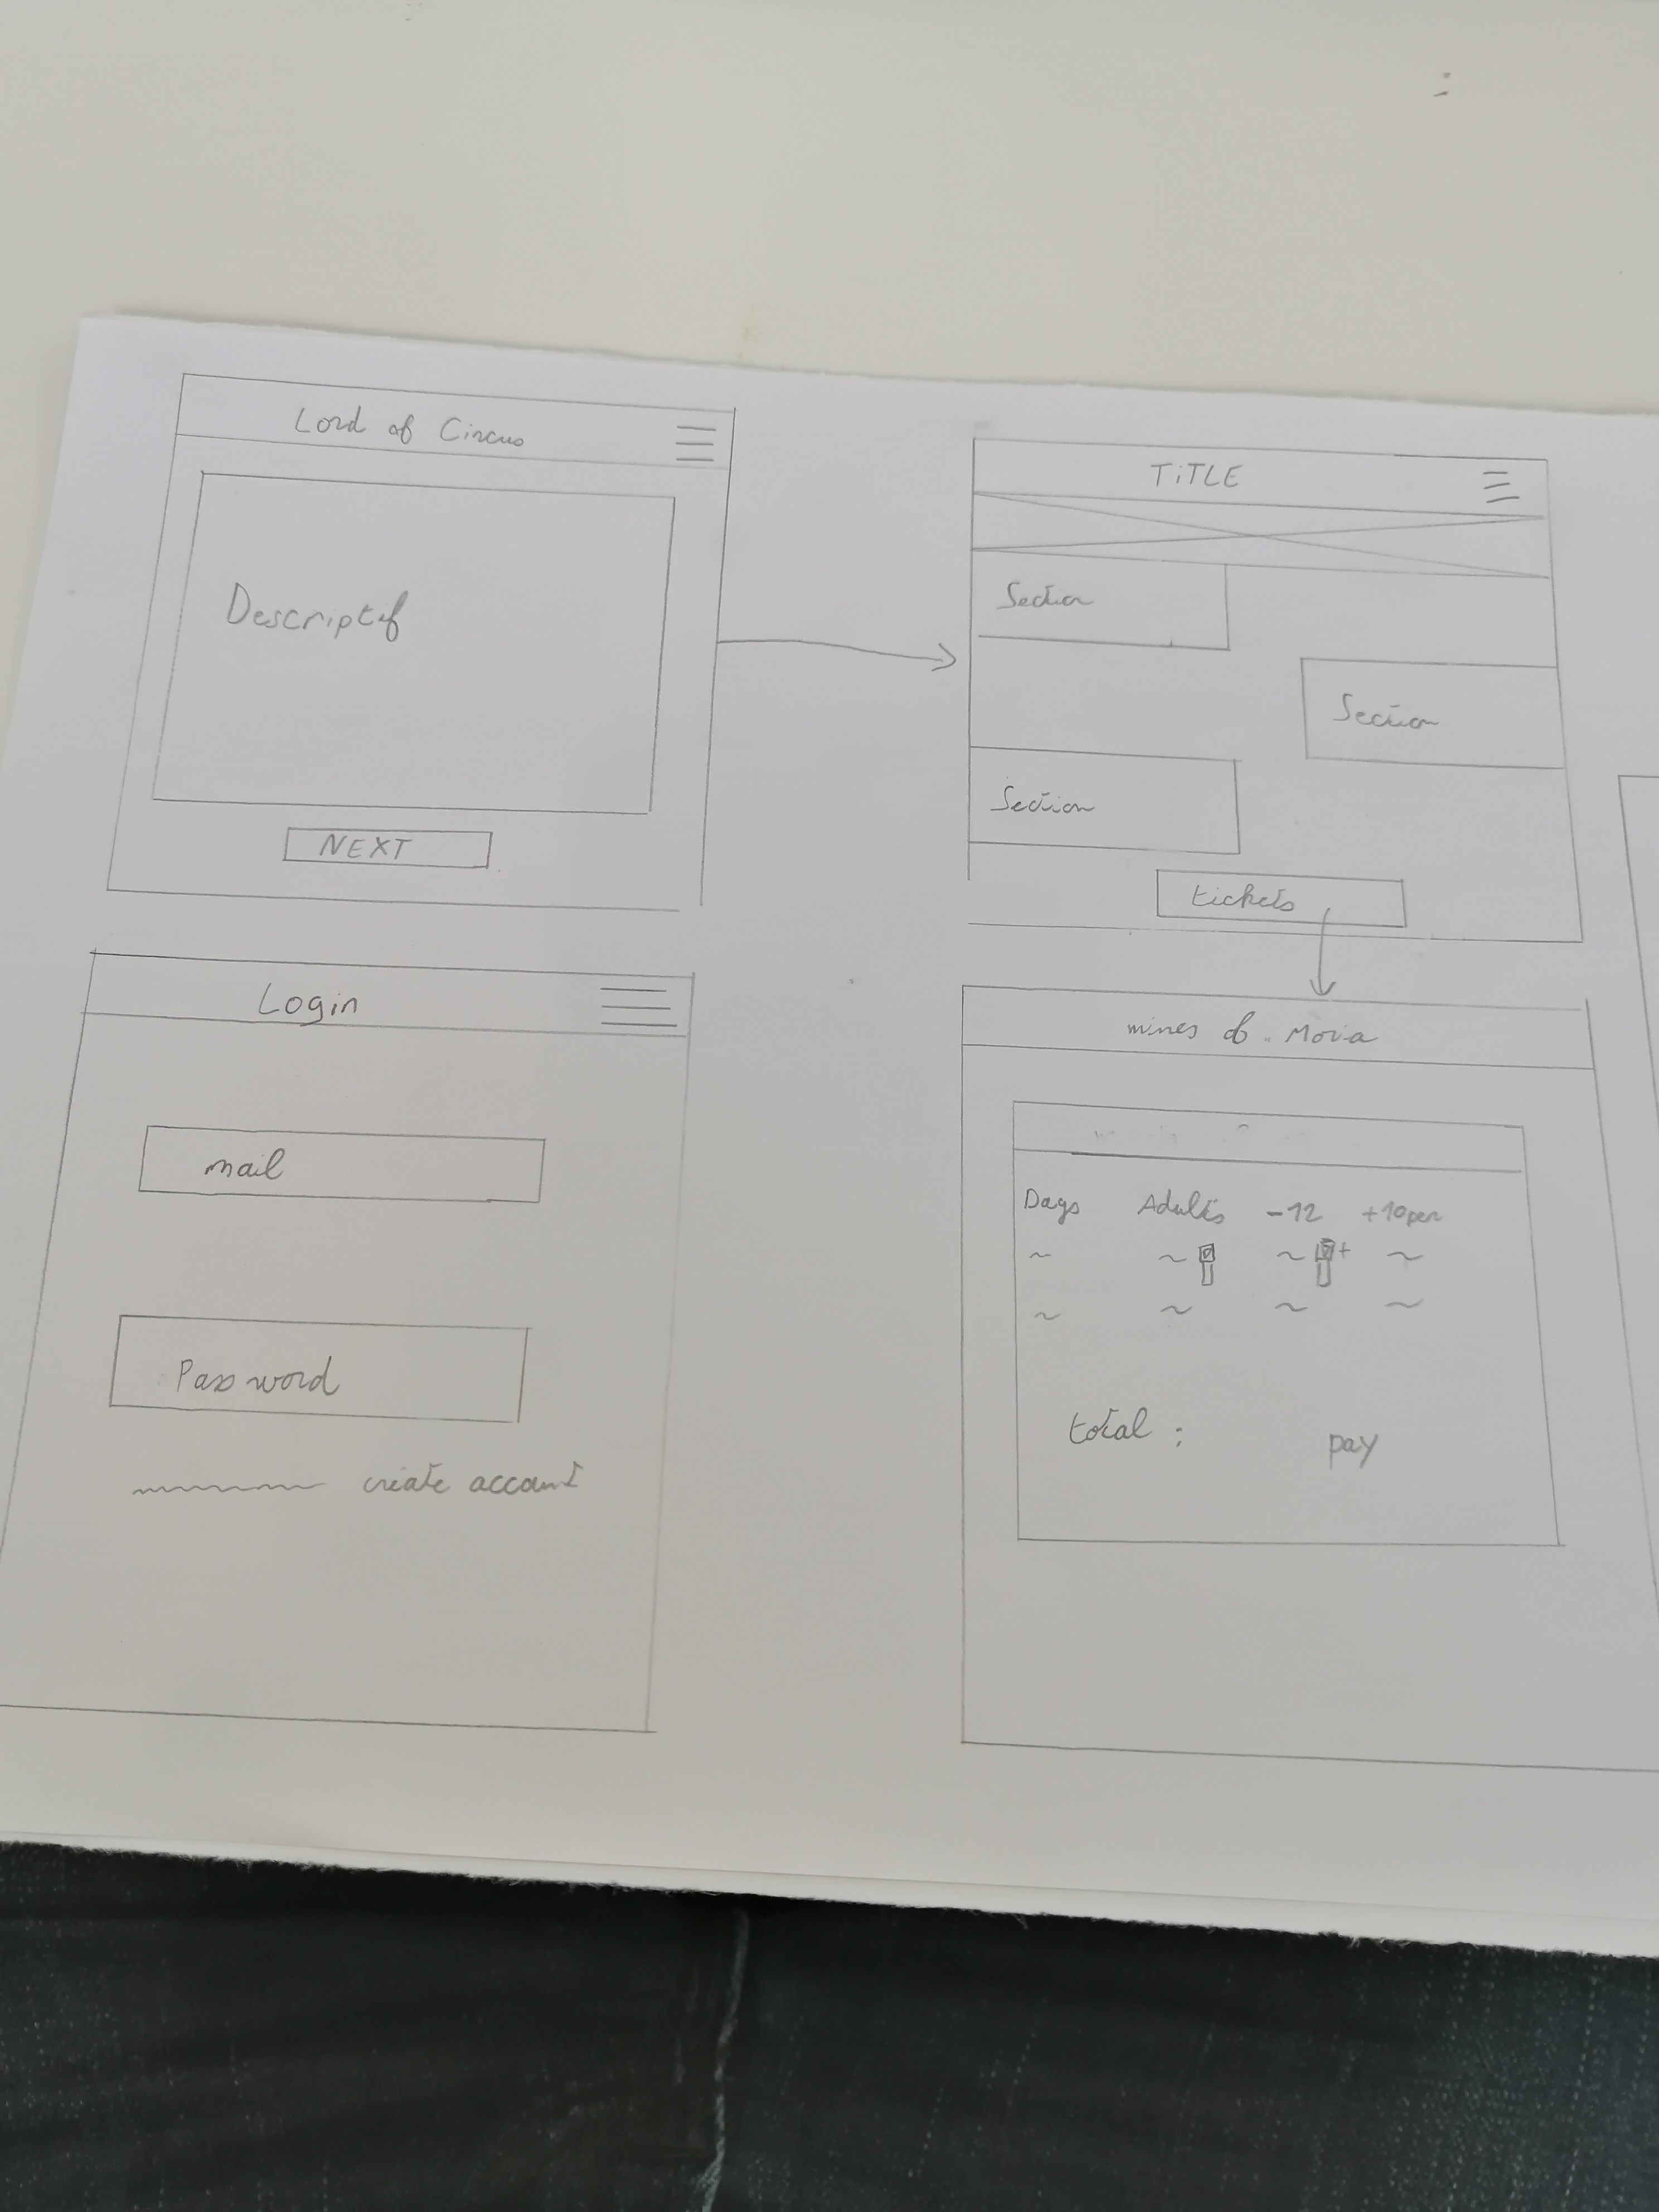 Lord of Circus
Descriptif
NEXT
TiTLE
Section
Section
Section
tickets
Login
mail
Password
create account
mines of Moria
Days Adults -12 +10per
total :
pay